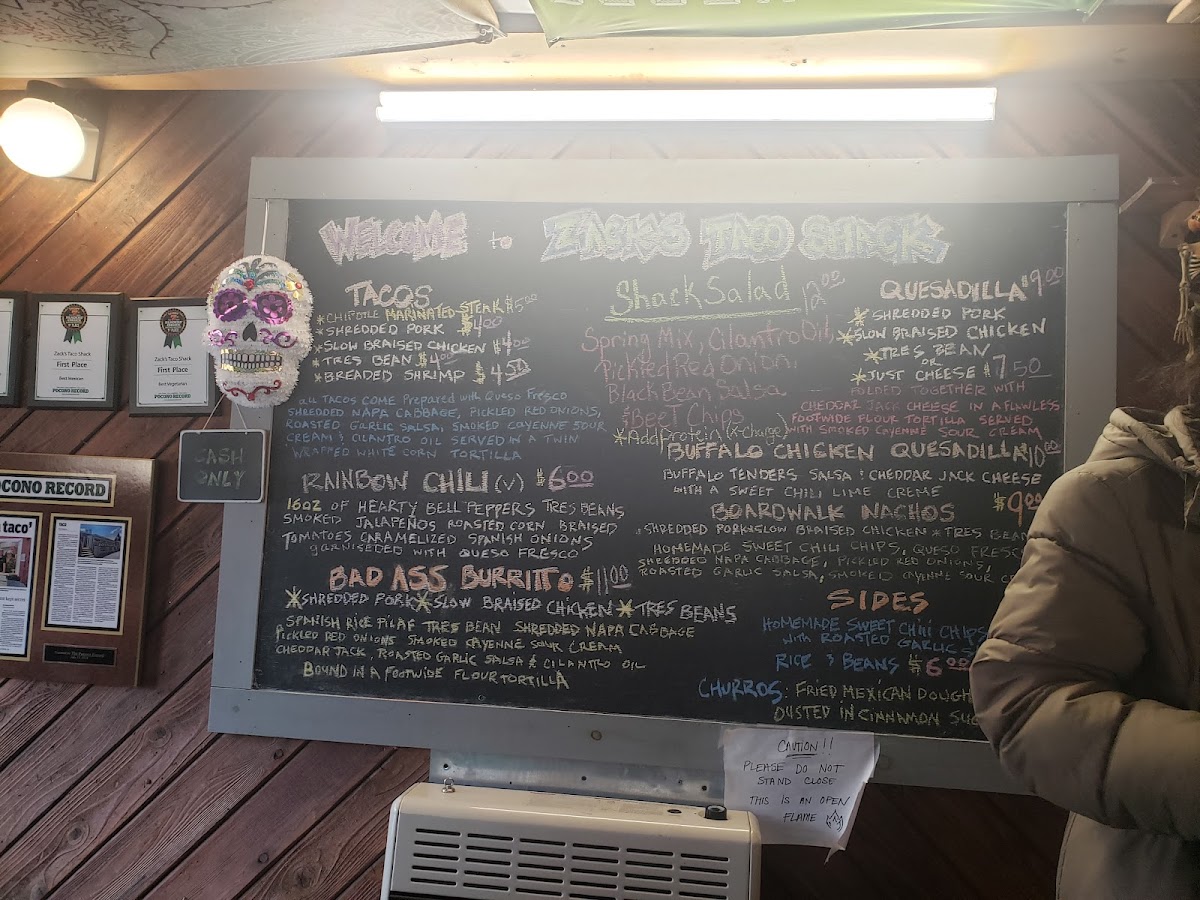 WELCOME to ZACK'S TACO SHACK
TACOS
*CHIPOTLE MARINATED STEAK $5.00
*SHREDDED PORK $4.00
*SLOW BRAISED CHICKEN $4.00
*TRES BEAN $4.00
*BREADED SHRIMP $4.50
ALL TACOS COME Prepared with Queso Fresco
SHREDDED NAPA CABBAGE, PICKLED RED ONIONS,
ROASTED GARLIC SALSA, SMOKED CAYENNE SOUR
CREAM & CILANTRO OIL SERVED IN A TWIN
WRAPPED WHITE CORN TORTILLA
RAINBOW CHILI (V) $6.00
16oz OF HEARTY BELL PEPPERS TRES BEANS
SMOKED JALAPEÑOS ROASTED CORN BRAISED
TOMATOES CARAMELIZED SPANISH ONIONS
GARNISEDED WITH QUESO FRESCO
BAD ASS BURRITO $11.00
*SHREDDED PORK *SLOW BRAISED CHICKEN *TRES BEANS
SPANISH RICE PILAF TRES BEAN SHREDDED NAPA CABBAGE
PICKLED RED ONIONS SMOKED CAYENNE SOUR CREAM
CHEDDAR JACK, ROASTED GARLIC SALSA & CILANTRO OIL
BOUND IN A FOOTWIDE FLOUR TORTILLA
Shack Salad 12.00
Spring Mix, Cilantro Oil,
Pickled Red Onion
Black Bean Salsa
& BeeT Chips
*Add Protein (x-charge)
QUESADILLA $9.00
*SHREDDED PORK
*SLOW BRAISED CHICKEN
*TRES BEAN
OR
*JUST CHEESE $7.50
FOLDED TOGETHER WITH
CHEDDAR JACK CHEESE IN A FLAWLESS
FOOTWIDE FLOUR TORTILLA SERVED
WITH SMOKED CAYENNE SOUR CREAM
BUFFALO CHICKEN QUESADILLA $10.00
BUFFALO TENDERS SALSA & CHEDDAR JACK CHEESE
WITH A SWEET CHILI LIME CREME
BOARDWALK NACHOS $9.00
*SHREDDED PORK*SLOW BRAISED CHICKEN*TRES BEAN
HOMEMADE SWEET CHILI CHIPS, QUESO FRESC
SHREDDED NAPA CABBAGE, PICKLED RED ONIONS,
ROASTED GARLIC SALSA, SMOKED CAYENNE SOUR C
SIDES
HOMEMADE SWEET CHILI CHIPS
WITH ROASTED GARLIC S
RICE & BEANS $6.00
CHURROS: FRIED MEXICAN DOUGH
DUSTED IN CINNAMON SU
CASH
ONLY
Zack's Taco Shack
First Place
Best Mexican
POCONO RECORD
Zack's Taco Shack
First Place
Best Vegetarian
POCONO RECORD
POCONO RECORD
taco'
CAUTION!!
PLEASE DO NOT
STAND CLOSE
THIS IS AN OPEN
FLAME